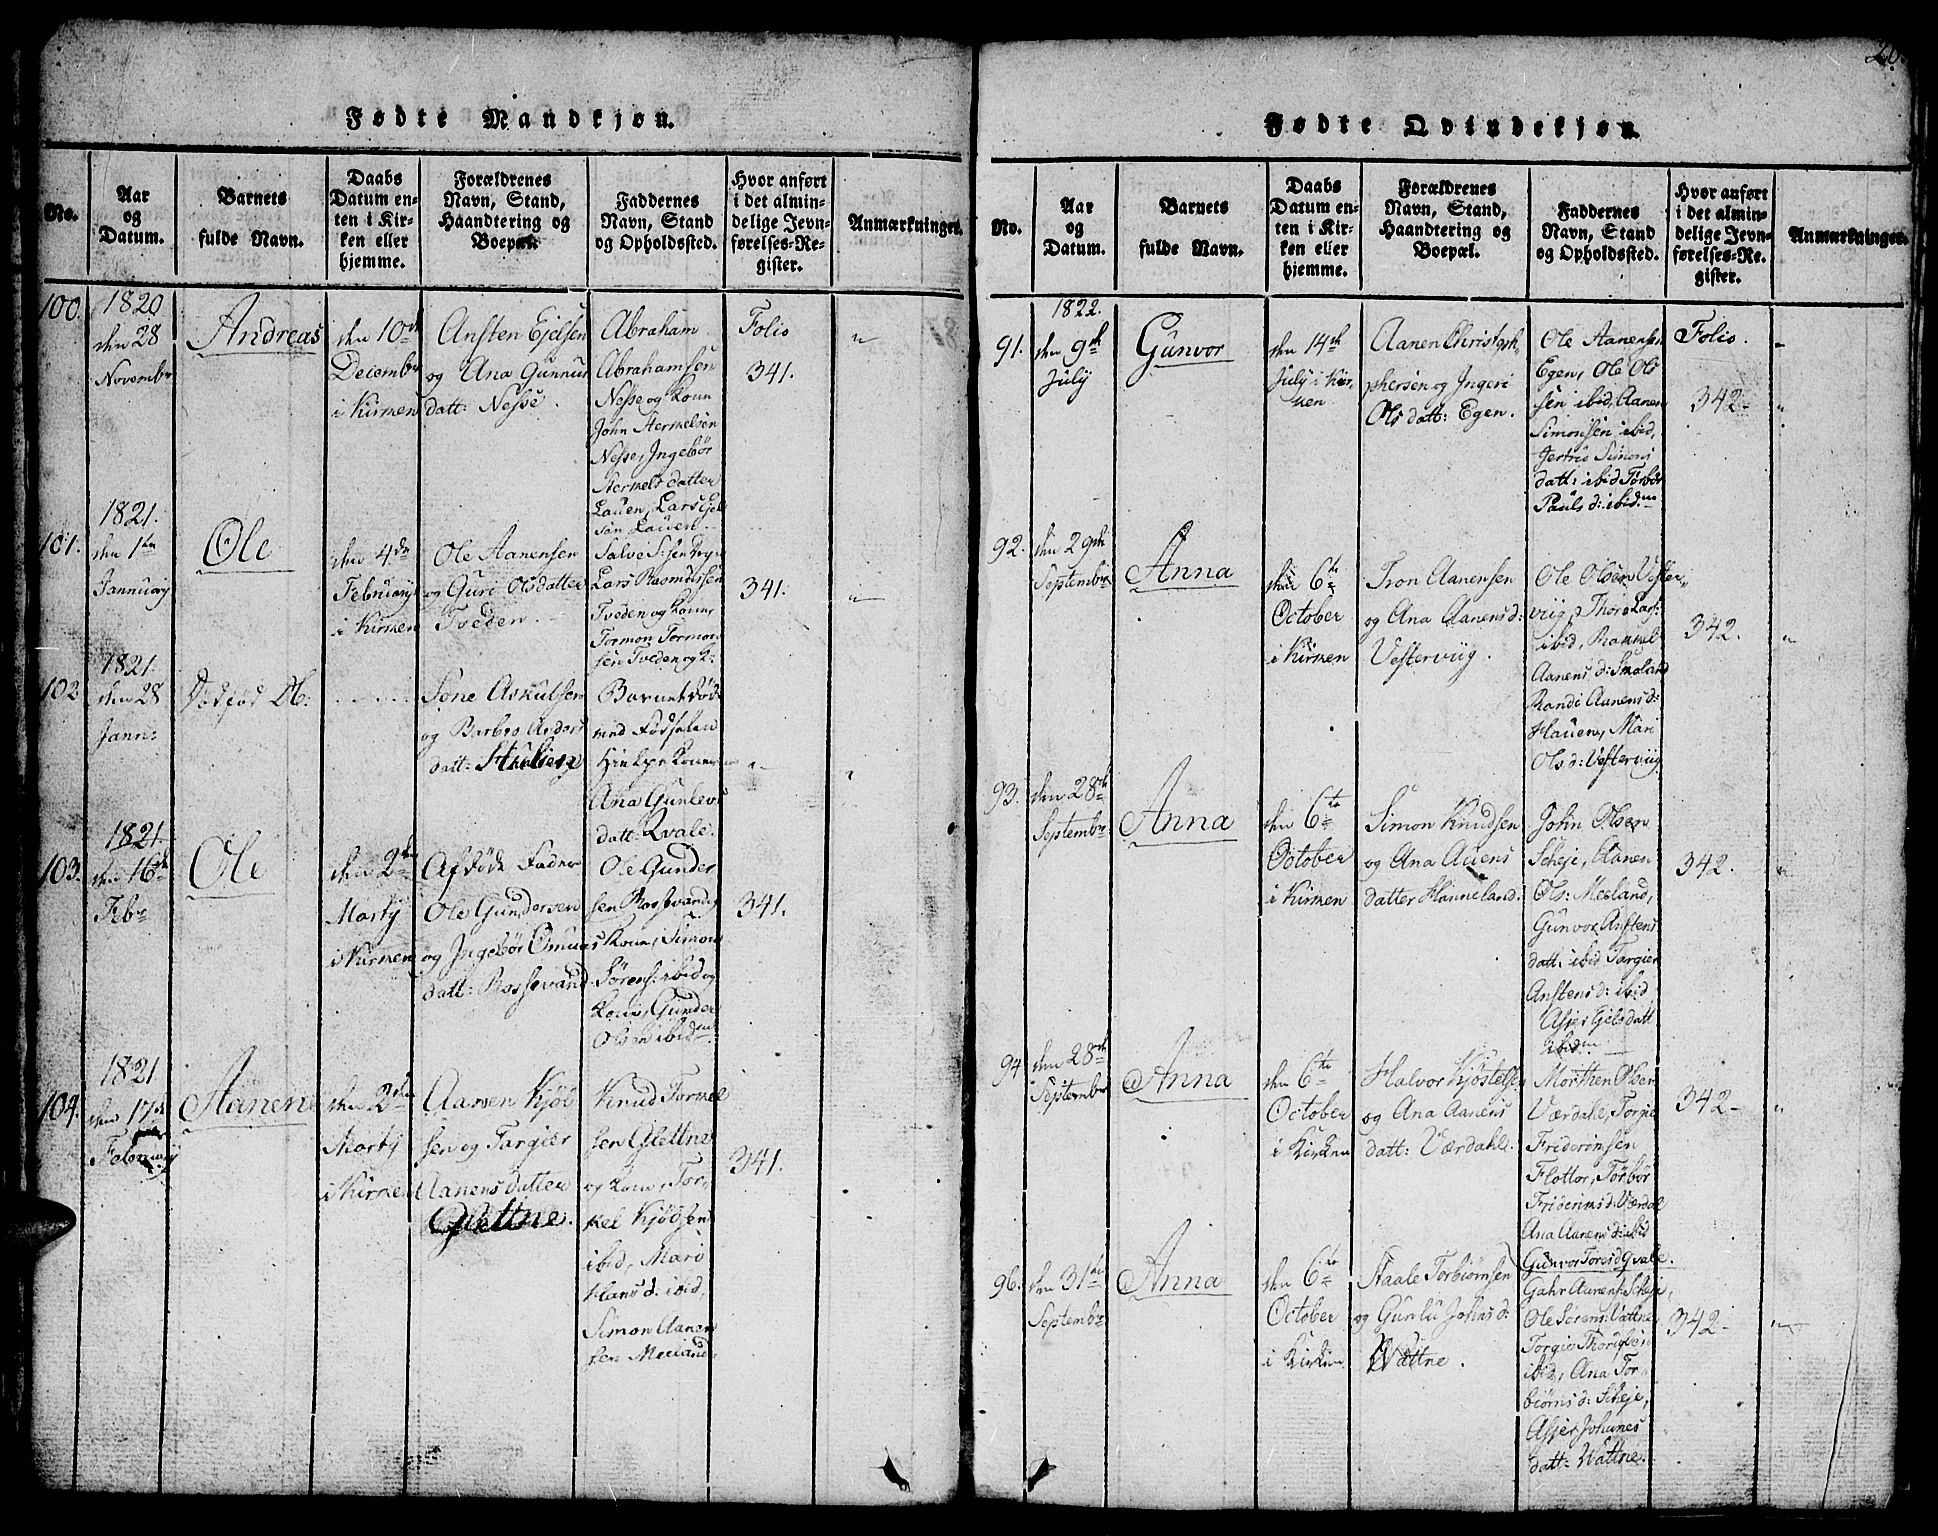 20.
Fødte Mandkjøn.
No.
Aar
og
Datum.
Barnets
fulde Navn.
Daabs
Datum en-
ten i Kir-
ken eller
hjemme.
Forældrenes
Navn, Stand,
Haandtering og
Boepæl.
Faddernes
Navn, Stand
og Opholdssted.
Hvor anført
i det almin-
delige Jevn-
førelses-Re-
gister.
Anmærkninger.
100.
1820
den 28
Novembr
Andreas
den 10de
Decembr
i Kirken
Ansten Ejelsen
og Ana Gunnus
datt: Nesse.
Abraham
Abrahamsen
Nesse og Kone
John Stermelsen
Nesse, Ingebör
datter
Lauen, Lars Ejel
sön Lauen.
Folio
341.
"
101.
1821.
den 1te
Januarij
Ole
den 4de
Februarij
i Kirken
Ole Aanensen
og Guri Olsdatter
Tveden.
Salve
Lars Rasmussen
Tveden og Kone,
Tormon Tormon
sen Tveden og K:
341.
"
102
1821.
den 28
Jann:
Dødfød
Tone Askulsen
og Barbro Anders
datt:
Barnet död
ved Födselen
Kone
Ana Gunlevs
datt: Kvale.
"
103.
1821.
den 16de
Febr
Ole
den 2den
Martij
i Kirken
Afdöde Fader
Ole Gundersen
og Ingebör Omuns
datt: Rossevand
Ole Gunder
sen Rossevand og
Kone, Simon
Sörens: ibid og
Kone, Gunder
Olsen ibidm
341.
104.
1821
den 17de
Februarij
Aanen
den 2den
Martij
i Kirken
Aanen Kjöd
sen og Targier
Aanensdatter
Glettne.
Knud Tormel
sen Glettne
og Kone, Tor,
kel Kjödsen
ibid, Mari
Hansd: ibid,
Simon Aanen
sen
341.
Fødte Qvindekjøn.
No.
Aar
og
Datum.
Barnets
fulde Navn.
Daabs
Datum en-
ten i Kir-
ken eller
hjemme.
Forældrenes
Navn, Stand,
Haandtering og
Boepæl.
Faddernes
Navn, Stand
og Opholdssted.
Hvor anført
i det almin-
delige Jevn-
førelses-Re-
gister.
Anmærkninger.
91.
1822.
den 9de
July
Gunvor
den 14de
July i Kir,
ken
Aanen Christoph,
phersen og Ingeri
Olsdatt: Egen.
Ole Aanensen
Egen, Ole Ol
sen ibid, Aanen
Simonsen ibid,
Jertrud Simons
datt: ibid Torbör
Paulsd: ibidm
Folio.
342-
92.
den 29de
Septembr
Anna
den 6te
October
i Kirken
Tron Aanensen
og Ana Aanensd:
Vesterviig.
Ole Olsen Vester,,
viig, Thore Lars:
ibid,
Aanensd: Smaland
Randi Aanensd:
Hauen, Mari
Olsd: Vesterviig
342.
"
93.
den 28de
Septembr
Anna
den 6te
October
i Kirken
Simon Knudsen
og Ana Auens
datter Hanneland.
John Olsen
Scheje, Aanen
Ols: Mesland,
Gunvor Anstens
datt: ibid Targier
Anstensd: ibid
Asjer Gjelsdatt
ibidm
342.
"
94
den 28de
Septembr
Anna
den 6te
October
i Kirken
Halvor Kjöstelsen
og Ana Aanens
datt: Værdahl.
Morthen Olsen
Værdahl, Torgie
Fridericsen
Flottor, Torbör
Fridericsd: Værdal
Ana Aanensd: ibid
Gunvor Toresd Qvale.
342-
"
96.
den 31te
Septembr
Anna
den 6te
October
i Kirken
Staale Torbiörnsen
og Gunlu Johnsd:
Wattne.
Gahr Aanens: Scheje,
Ole Sörens: Vattne
Torgie Thorigsen
ibid, Ana Tor-
biörnsd: Scheje,
Asjer Johanes
datt: Wattne.
342-
"